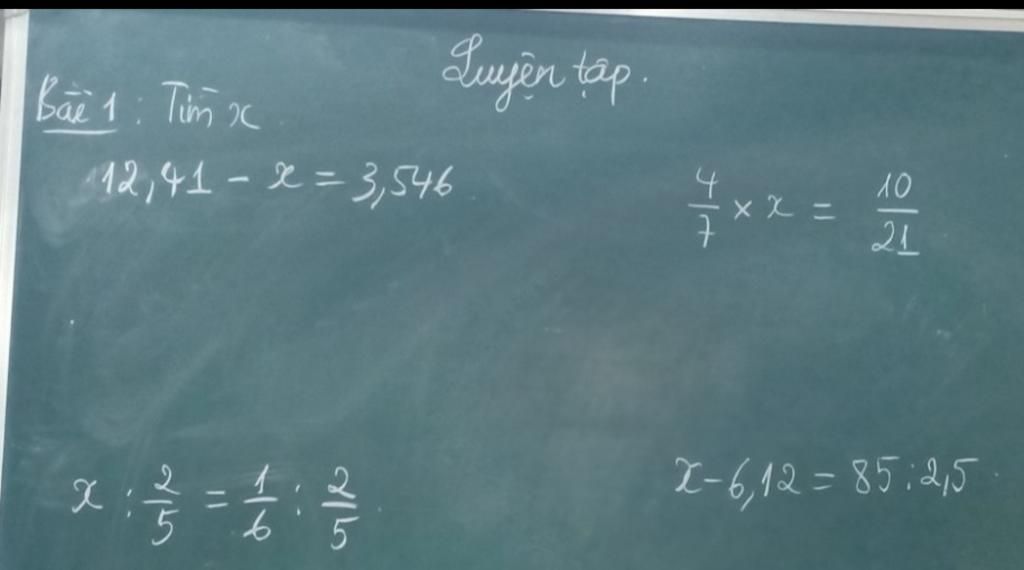 Luyện tập.
Bài 1 : Tìm x
12,41 - x = 3,546
4/7 × x = 10/21
x : 2/5 = 1/6 : 2/5
x - 6,12 = 85 : 2,5